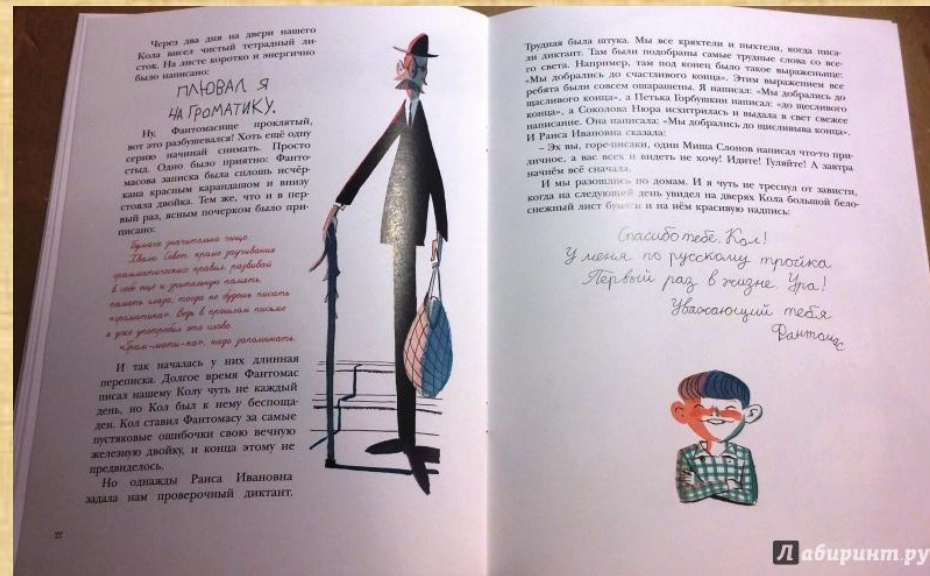 Через два дня на двери нашего
Кола висел чистый тетрадный ли-
сток. На листе коротко и энергично
было написано:
ПЛЮВАЛ Я
НА ГРОМАТИКУ.
Ну, Фантомасище проклятый,
вот это разбушевался! Хоть ещё одну
серию начинай снимать. Просто
стыд. Одно было приятно: Фанто-
масова записка была сплошь исчёр-
кана красным карандашом и внизу
стояла двойка. Тем же, что и в пер-
вый раз, ясным почерком было при-
писано:
Бумага значительно чище.
Хвалю. Совет: кроме заучивания
грамматических правил, развивай
в себе ещё и зрительную память,
память глаза, тогда не будешь писать
«громатика». Ведь в прошлом письме
я уже употребил это слово.
«Грам-мати-ка», надо запоминать.
И так началась у них длинная
переписка. Долгое время Фантомас
писал нашему Колу чуть не каждый
день, но Кол был к нему беспоща-
ден. Кол ставил Фантомасу за самые
пустяковые ошибочки свою вечную
железную двойку, и конца этому не
предвиделось.
Но однажды Раиса Ивановна
задала нам проверочный диктант.
22
Трудная была штука. Мы все кряхтели и пыхтели, когда писа-
ли диктант. Там были подобраны самые трудные слова со все-
го света. Например, там под конец было такое выраженьице:
«Мы добрались до счастливого конца». Этим выражением все
ребята были совсем ошарашены. Я написал: «Мы добрались до
щасливого конца», а Петька Горбушкин написал: «до щесливого
конца», а Соколова Нюра исхитрилась и выдала в свет свежее
написание. Она написала: «Мы добрались до щисливыва конца».
И Раиса Ивановна сказала:
– Эх вы, горе-писаки, один Миша Слонов написал что-то при-
личное, а вас всех и видеть не хочу! Идите! Гуляйте! А завтра
начнём всё сначала.
И мы разошлись по домам. И я чуть не треснул от зависти,
когда на следующий день увидел на дверях Кола большой бело-
снежный лист бумаги и на нём красивую надпись:
Спасибо тебе, Кол!
У меня по русскому тройка
Первый раз в жизне. Ура!
Уважающий тебя
Фантомас
Лабиринт.ру